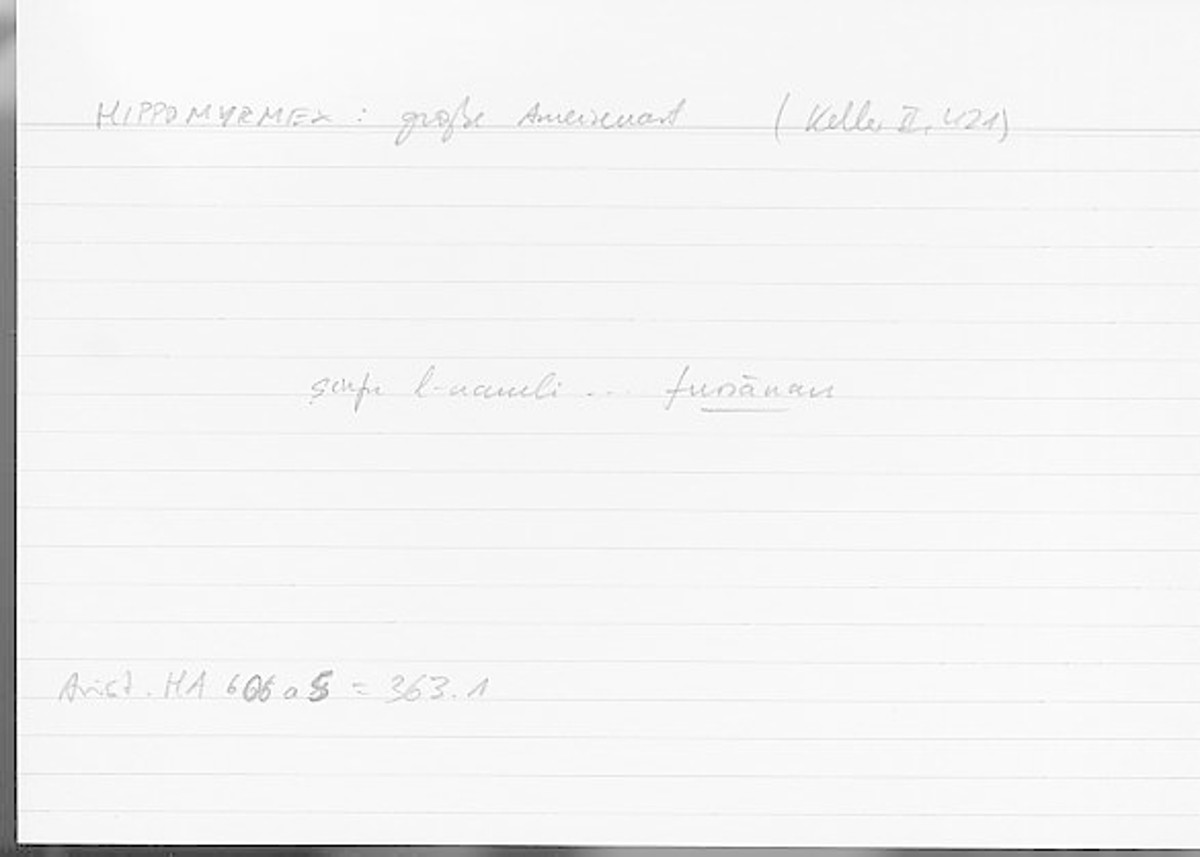 HIPPOMYRMEX : große Ameisenart (Keller II, 421)
ṣinfu l-namli ... fursānan
Arist. HA 606 a 5 = 363.1